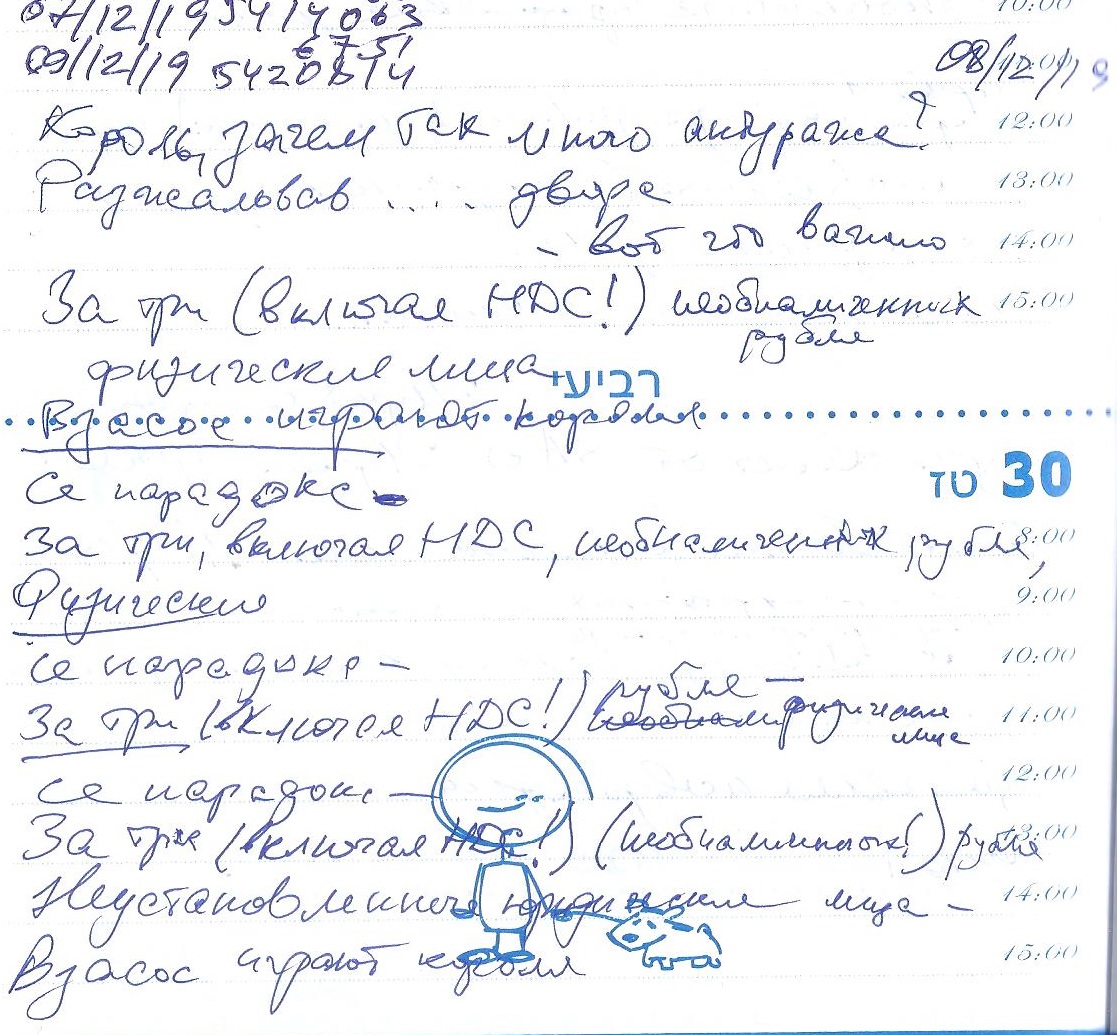 07/12/19 5414063
6751
09/12/19 5420814
08/12/19
10:00
Король, зачем так много антуража?
12:00
Разжаловав .... двора
13:00
- вот что важно
14:00
За три (включая НДС!) необналиченных
рубля
15:00
физические лица
רביעי
Взасос играют короля
30 טז
Се парадокс -
За три, включая НДС, необналиченных рубля,
8:00
Физические
9:00
Се парадокс -
10:00
За три (включая НДС!) рубля - физические
лица
11:00
Се парадокс -
12:00
За три (включая НДС!) (необналиченных!) рубля
13:00
Неустановленные юридические лица -
14:00
Взасос играют короля
15:00